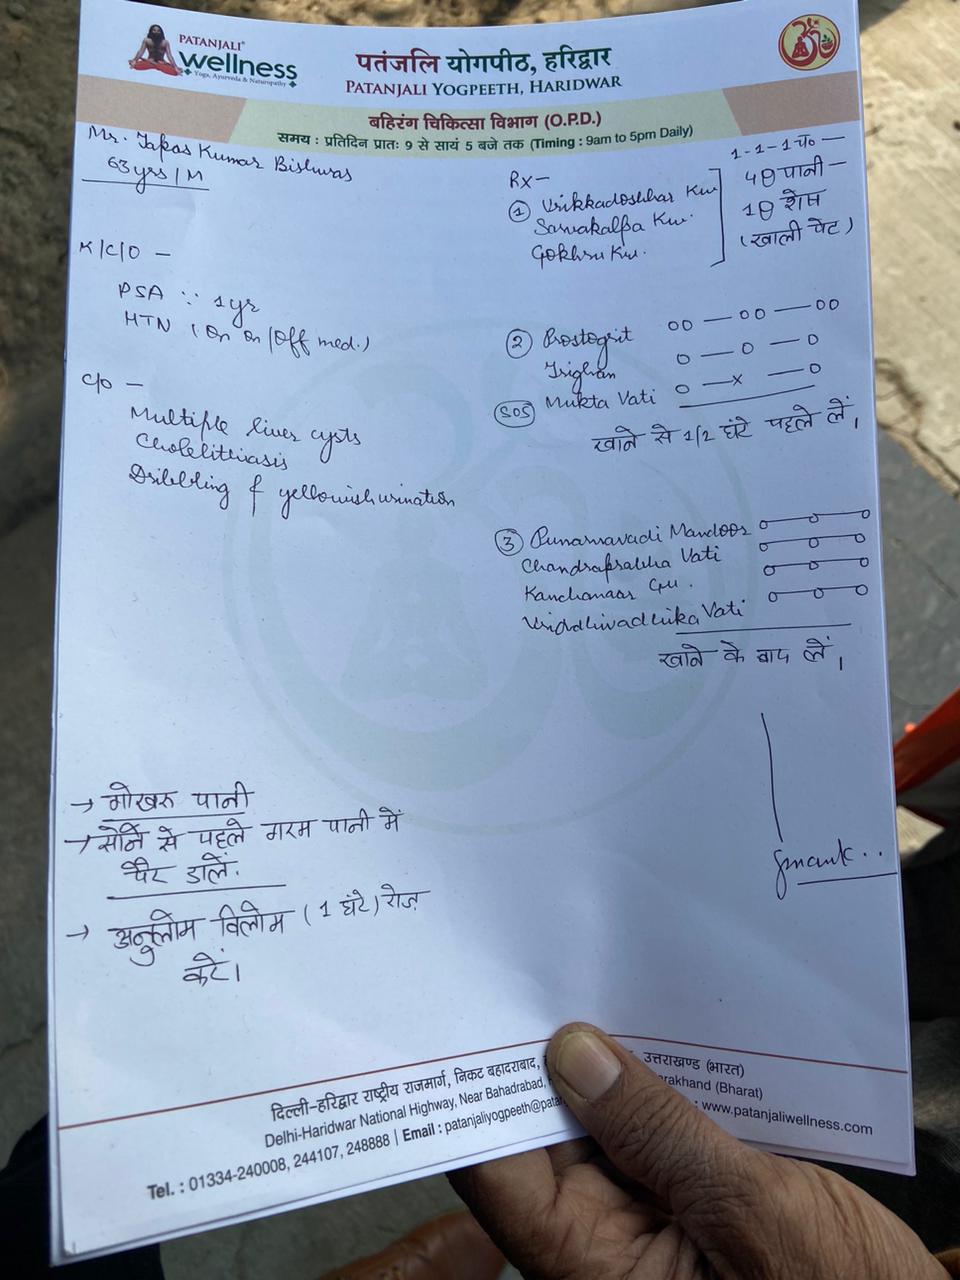 PATANJALI®
wellness
Yoga, Ayurveda & Naturopathy
पतंजलि योगपीठ, हरिद्वार
PATANJALI YOGPEETH, HARIDWAR
बहिरंग चिकित्सा विभाग (O.P.D.)
समय : प्रतिदिन प्रातः 9 से सायं 5 बजे तक (Timing : 9am to 5pm Daily)
Mr. Tapas Kumar Bishwas
63 yrs / M
K/C/O -
PSA ∵ 1 yr
HTN ( On on /Off med.)
C/O -
Multiple liver cysts
Cholelithiasis
Dribbling of yellowish urination
→ गोखरु पानी
→ सोने से पहले गरम पानी में
पैर डालें.
→ अनुलोम विलोम ( 1 घंटे) रोज़
करें।
Rx -
① Vrikkadoshhar Kw
Sarvakalpa Kw.
Gokhru Kw.
1-1-1 च० —
4 पानी —
1 शेष
(खाली पेट)
② Prostogrit oo — oo — oo
Trighan o — o — o
SOS Mukta Vati o — x — o
खाने से 1/2 घंटे पहले लें।
③ Punarnavadi Mandoor o — o — o
Chandraprabha Vati o — o — o
Kanchanaar Gu. o — o — o
Vriddhivadhika Vati o — o — o
खाने के बाद लें।
दिल्ली-हरिद्वार राष्ट्रीय राजमार्ग, निकट बहादराबाद, उत्तराखण्ड (भारत)
Delhi-Haridwar National Highway, Near Bahadrabad, arakhand (Bharat)
Tel. : 01334-240008, 244107, 248888 | Email : patanjaliyogpeeth@patan : www.patanjaliwellness.com